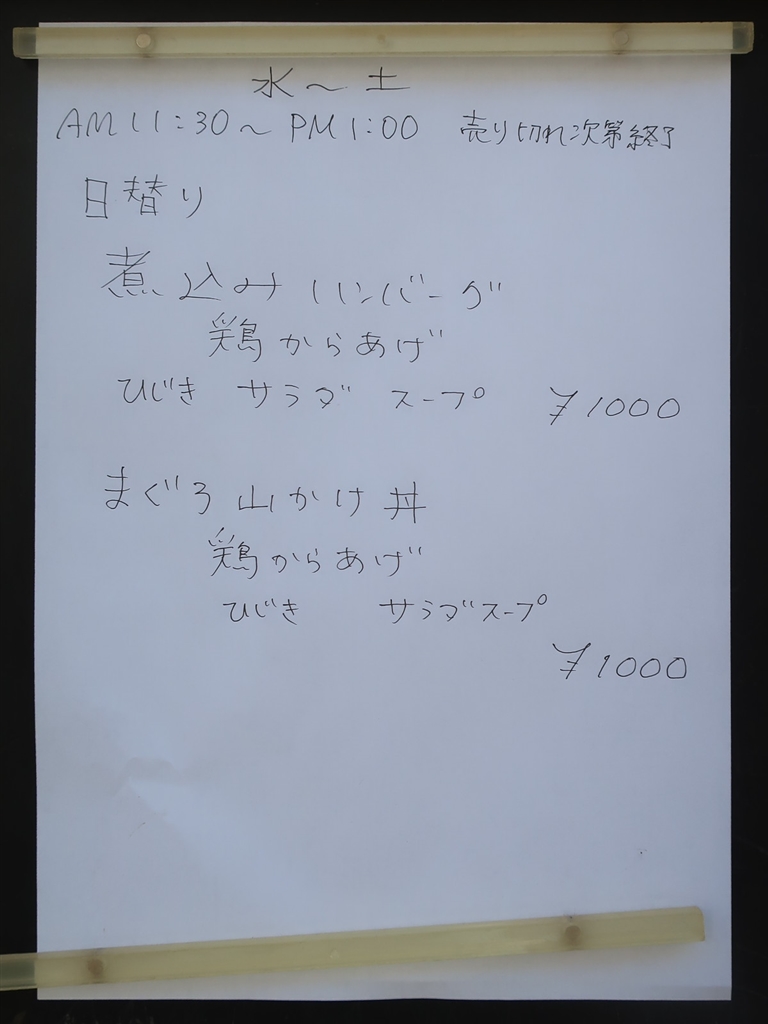 水～土
AM 11:30～PM 1:00 売り切れ次第終了
日替り
煮込みハンバーグ
鶏からあげ
ひじき サラダ スープ ¥1000
まぐろ山かけ丼
鶏からあげ
ひじき サラダスープ
¥1000